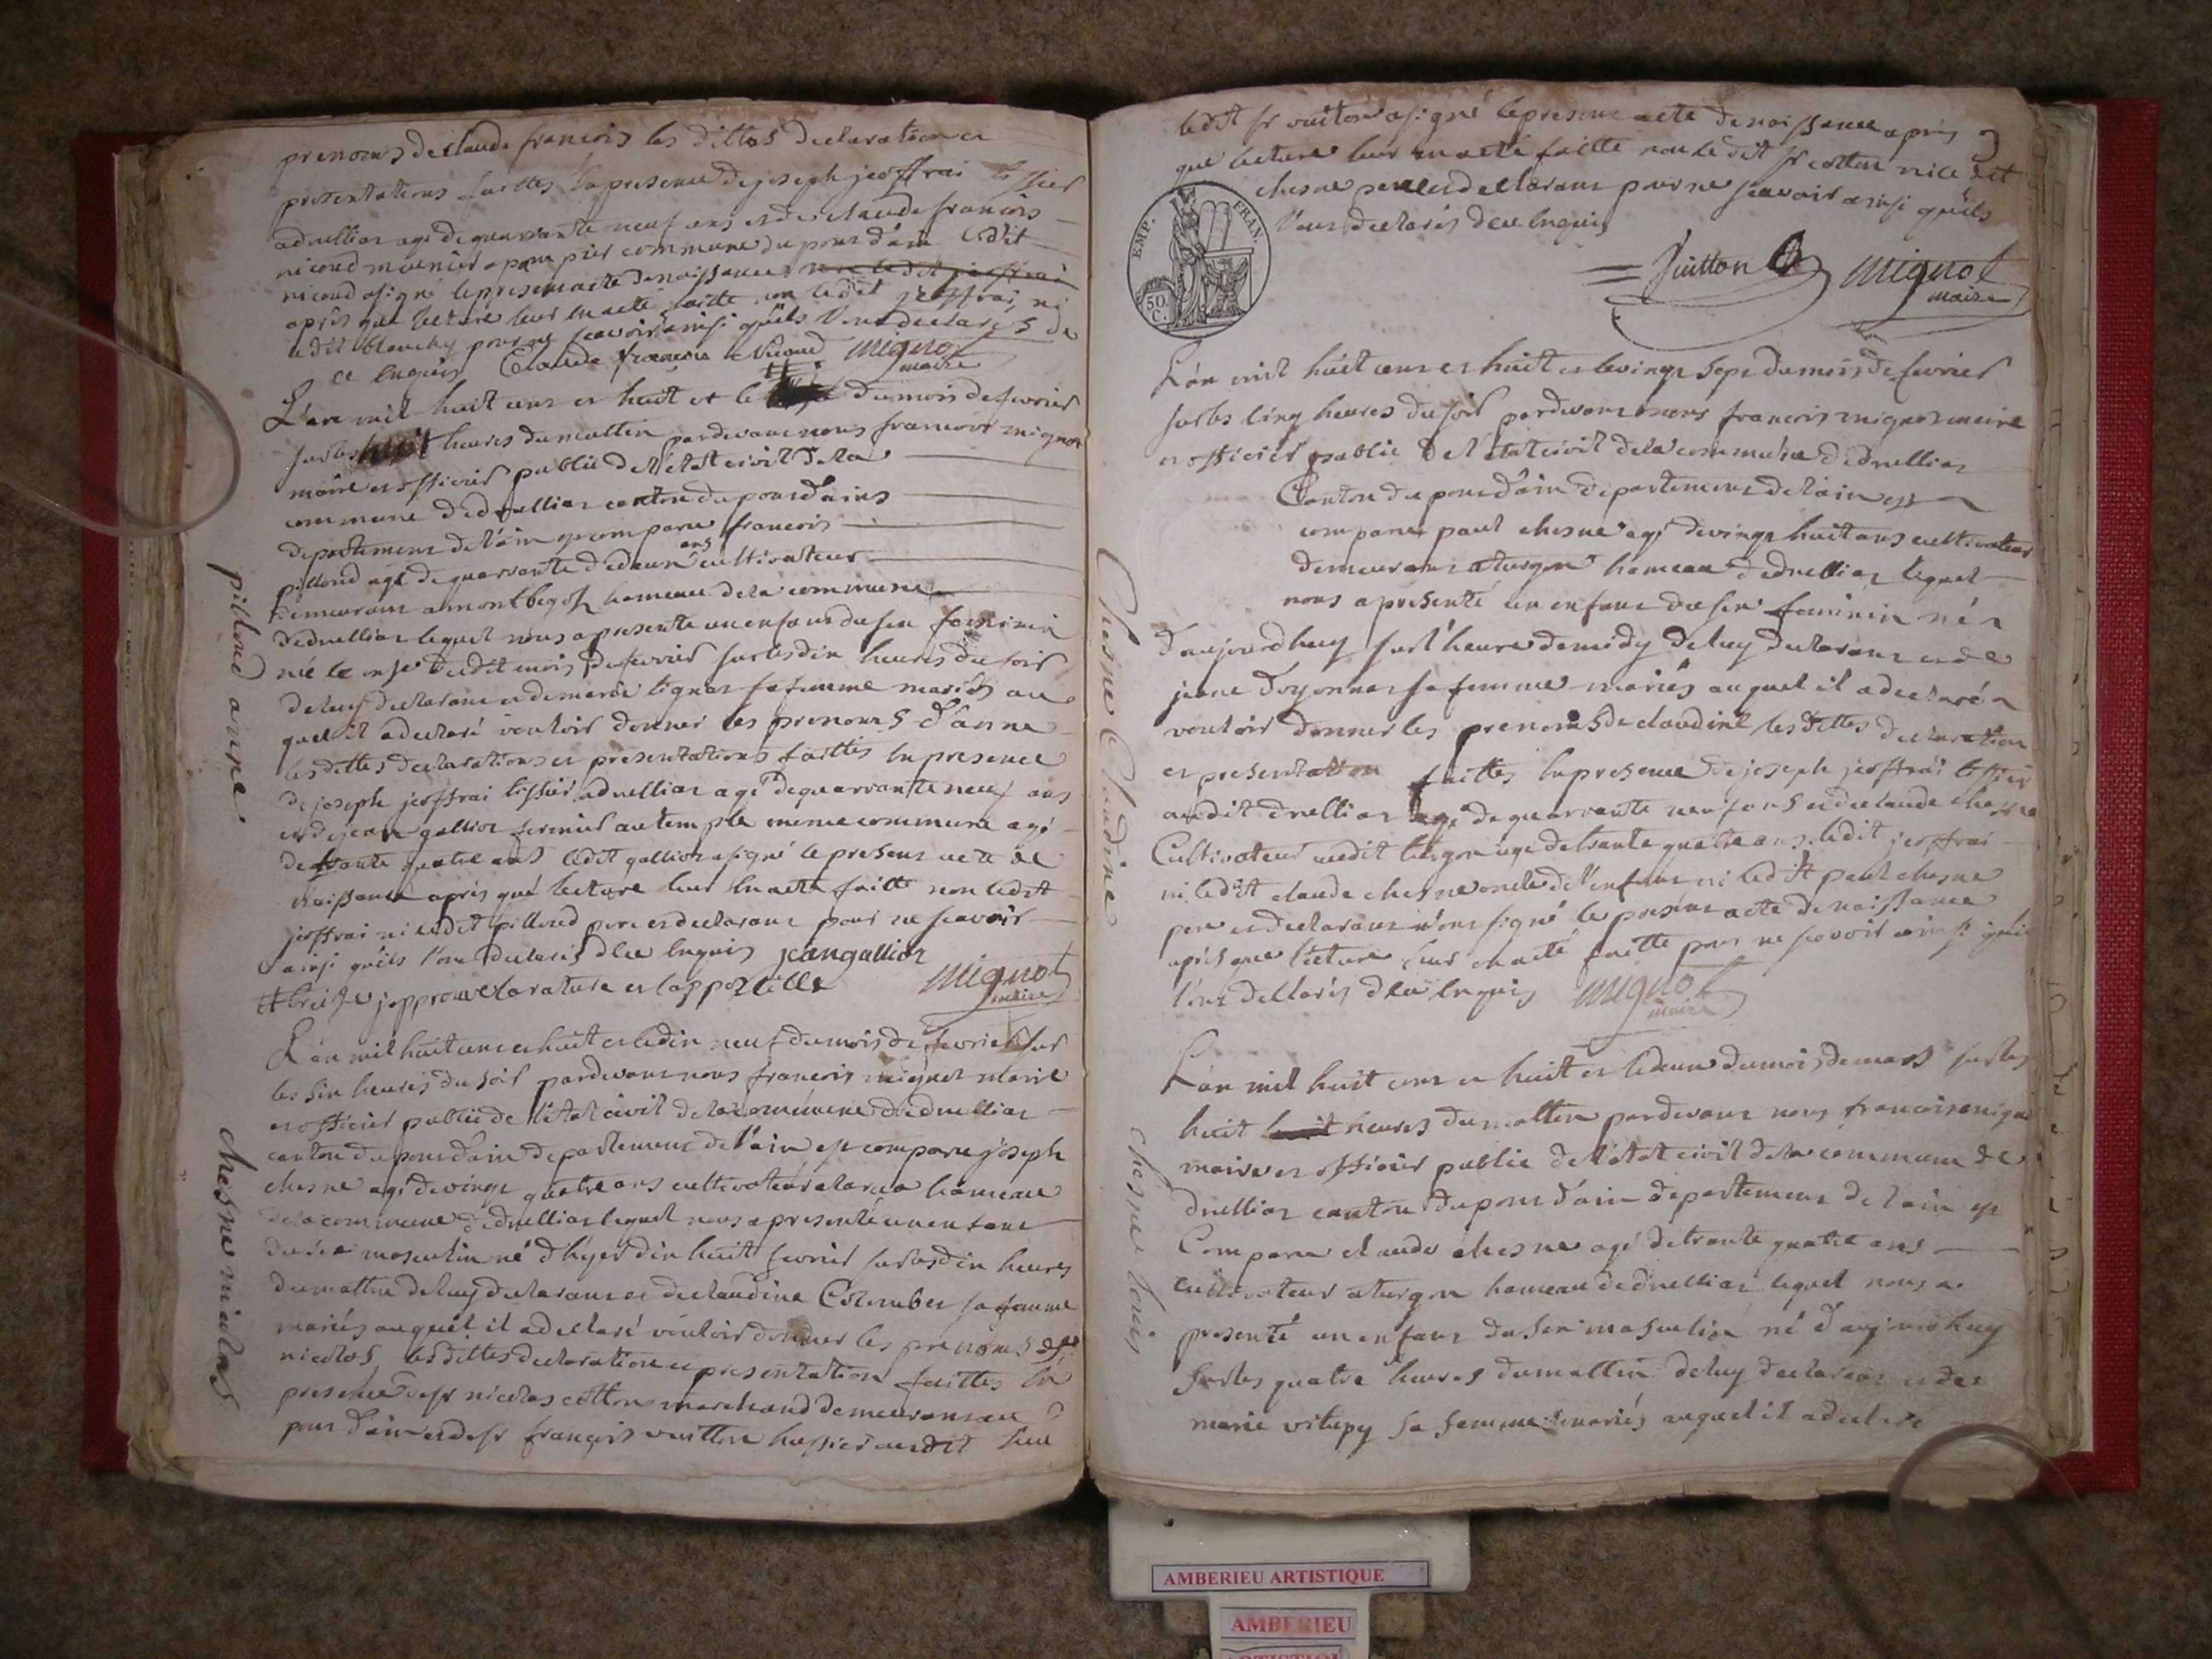 prenoms de claude francois les dittes declaration et
presentations faittes en presence de joseph jeoffrai tissier
a druillias agé de quarrante neuf ans et de claude francois
nicoud meunier a pompier commune du pont d'ain ledit
nicoud a signé le present acte de naissance non ledit jeoffrai
après que lecture leur en a eté faitte non ledit jeoffrai ni
ledit blanchy pour ne scavoir ainsi qu'ils l'ont declarés de
ce enquis Claude francois Nicoud mignot
maire
L'an mil huit cent et huit et le du mois de fevrier
sur les heures du mattin pardevant nous francois mignot
maire et officier public de l'etat civil de la
commune de druillias canton du pont d'ains
departement de l'ain est comparu francois
pilloud agé de quarrante deux ans cultivateur
demeurant a hameau de la commune
de druillias lequel nous a presenté un enfant du sex feminin
né le onse dudit mois de fevrier sur les dix heures du soir
de luy declarant et de marie tignat sa femme mariés au
quel il a declaré vouloir donner les prenoms d'anne
les dittes declarations et presentations faittes en presence
de joseph jeoffrai tissier a druillias agé de quarrante neuf ans
et de jean galliot fermier au temple meme commune agé
de trante quatre ans ledit galliot a signé le present acte de
naissance après que lecture leur en a eté faitte non ledit
jeoffrai ni ledit pilloud pere et declarant pour ne scavoir
ainsi qu'ils l'ont declarés d'ce enquis jean galliot
treize j'approuve la rature et l'appostille mignot
maire
pilloud anne
L'an mil huit cent et huit et le dix neuf du mois de fevrier sur
les six heures du soir pardevant nous francois mignot maire
et officier public de l'etat civil de la commune de druillias
canton du pont d'ain departement de l'ain est comparu joseph
chesne agé de vingt quatre ans cultivateur hameau
de la commune de druillias lequel nous a presenté un enfant
du sex masculin né d'hyer dix huit fevrier sur les dix heures
du mattin de luy declarant et de claudine Colombet sa femme
mariés auquel il a declaré vouloir donner les prenoms de
nicolas les dittes declaration et presentation faittes en
presence de sr nicolas cotton marchand demeurant au
pont d'ain et de sr françois vuitton huissier audit lieu
chesne nicolas
ledit sr vuitton a signé le present acte de naissance après
que lecture leur en a eté faitte non ledit sr cotton ni ledit
chesne pere et declarant pour ne scavoir ainsi qu'ils
l'ont declarés d'ce enquis
EMP. FRAN.
50. C.
Vuitton mignot
maire
L'an mil huit cent et huit et le vingt sept du mois de fevrier
sur les cinq heures du soir pardevant nous francois mignot maire
et officier public de l'etat civil de la commune de druillias
Canton du pont d'ain departement de l'ain est
comparu paul chesne agé de vingt huit ans cultivateur
demeurant a turgon hameau de druillias lequel
nous a presenté un enfant du sex feminin né
d'aujourdhuy sur l'heure de midy de luy declarant et de
jeane d'oyonnas sa femme mariés auquel il a declaré
vouloir donner les prenoms de claudine les dittes declaration
et presentation faittes en presence de joseph jeoffrai tissier
audit druillias agé de quarrante neuf ans et de claude chesne
Cultivateur audit turgon agé de trante quatre ans ledit jeoffrai
ni ledit claude chesne oncle de l'enfant ni ledit paul chesne
pere et declarant n'ont signé le present acte de naissance
après que lecture leur en a eté faitte pour ne scavoir ainsi qu'ils
l'ont declarés d'ce enquis mignot
maire
Chesne Claudine
L'an mil huit cent et huit et le deux du mois de mars sur les
huit huit heures du mattin pardevant nous francois mignot
maire et officier public de l'etat civil de la commune de
druillias canton du pont d'ain departement de l'ain est
Comparu claude chesne agé de trante quatre ans
cultivateur a turgon hameau de druillias lequel nous a
presenté un enfant du sex masculin né d'aujourdhuy
sur les quatre heures du mattin de luy declarant et de
marie vitupy sa femme mariés auquel il a declaré
chesne louis
AMBERIEU ARTISTIQUE
AMBERIEU